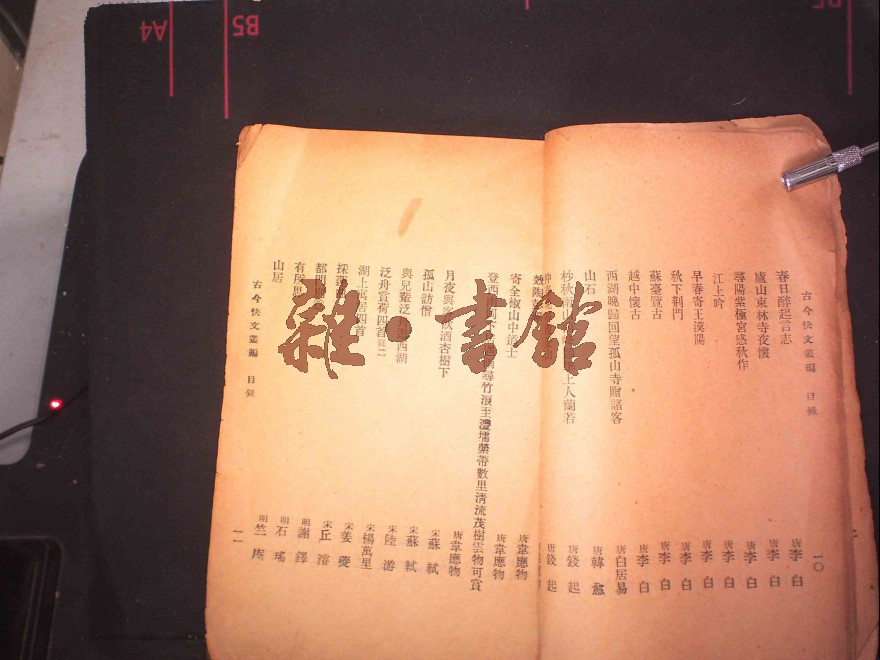 A4
B5
古今快文叢編 目錄 一〇
春日醉起言志 唐李白
廬山東林寺夜懷 唐李白
尋陽紫極宮感秋作 唐李白
江上吟 唐李白
早春寄王漢陽 唐李白
秋下荆門 唐李白
蘇臺覽古 唐李白
越中懷古 唐李白
西湖晚歸回望孤山寺贈諸客 唐白居易
山石 唐韓愈
杪秋南山 上人蘭若 唐錢起
唐錢起
效陶 唐韋應物
寄全椒山中道士 唐韋應物
登西 尋竹浪至灃壖縈帶數里清流茂樹雲物可賞 唐韋應物
月夜與客飲酒杏樹下 宋蘇軾
孤山訪僧 宋蘇軾
與兒輩泛舟游西湖 宋陸游
泛舟賞荷四首錄二 宋楊萬里
湖上寓居四首 宋姜夔
採蓮 宋丘濬
都門 明謝鐸
有所思 明石瑤
山居 明竺庵
古今快文叢編 目錄 一一
雜·書館